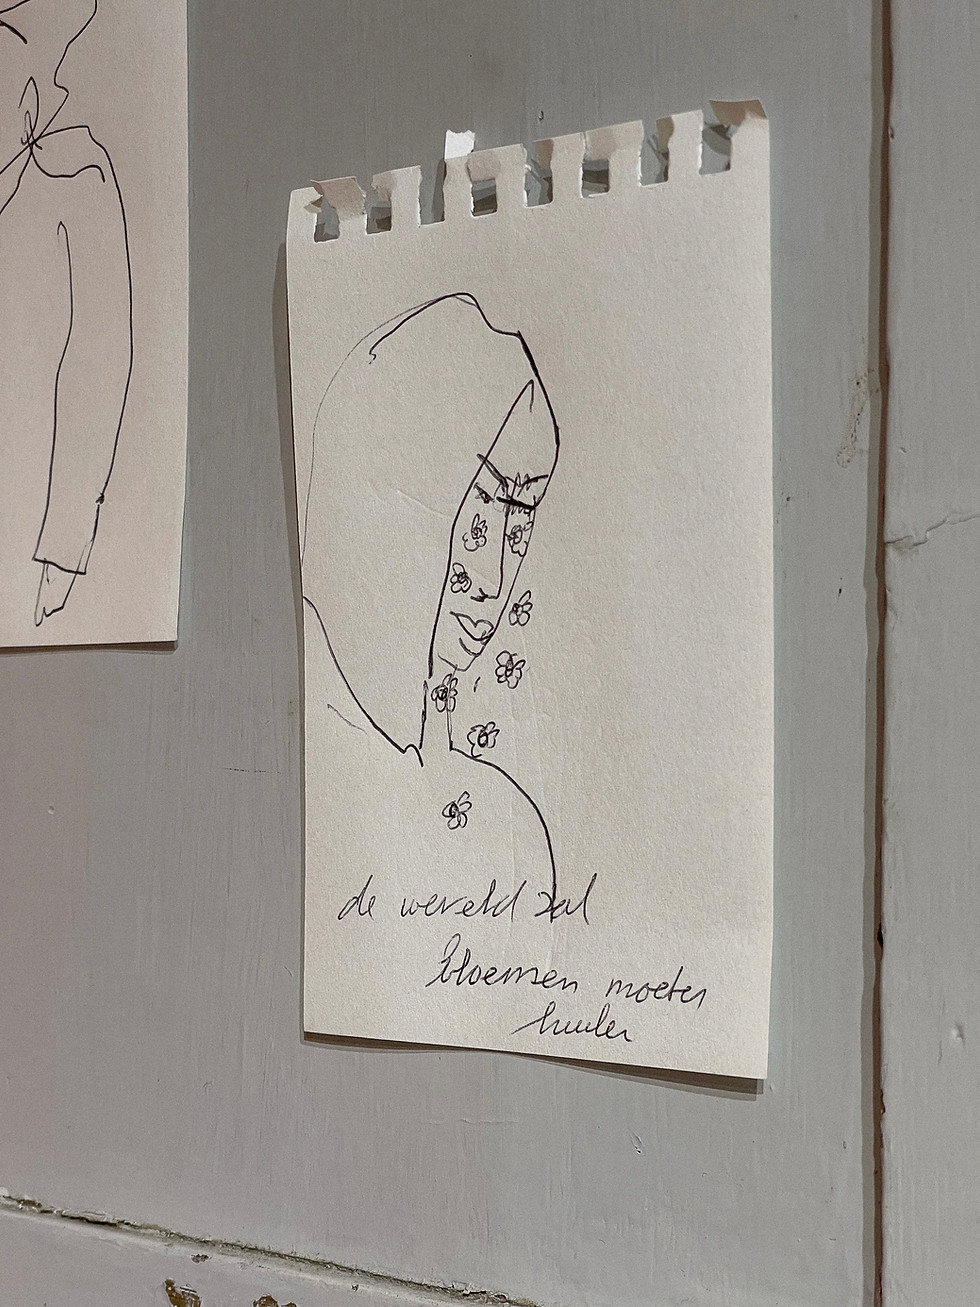 de wereld zal
bloemen moeten
huilen